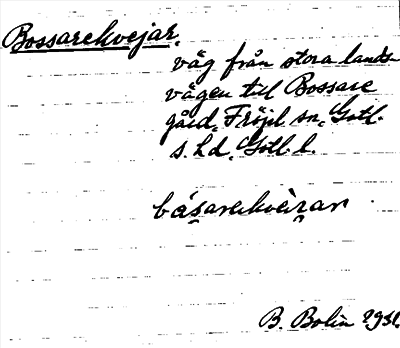 Bossarekvejar.
väg från stora lands-
vägen till Bossare
gård, Fröjel sn, Gotl.
s. hd, Gotl. l.
básarekvèiran
B. Bolin 1931.